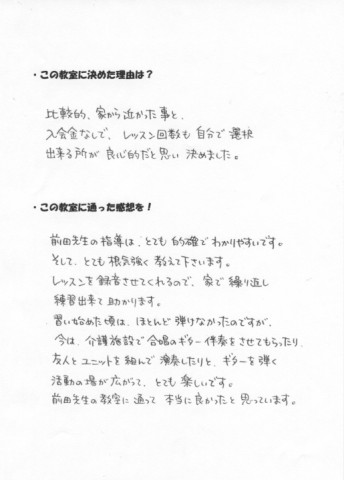 ・この教室に決めた理由は？
比較的、家から近かった事と、
入会金なしで、レッスン回数も自分で選択
出来る所が良心的だと思い決めました。
・この教室に通った感想を！
前田先生の指導は、とても的確でわかりやすいです。
そして、とても根気強く教えて下さいます。
レッスンを録音させてくれるので、家で繰り返し
練習出来て助かります。
習い始めた頃は、ほとんど弾けなかったのですが、
今は、介護施設で合唱のギター伴奏をさせてもらったり、
友人とユニットを組んで演奏したりと、ギターを弾く
活動の場が広がって、とても楽しいです。
前田先生の教室に通って本当に良かったと思っています。